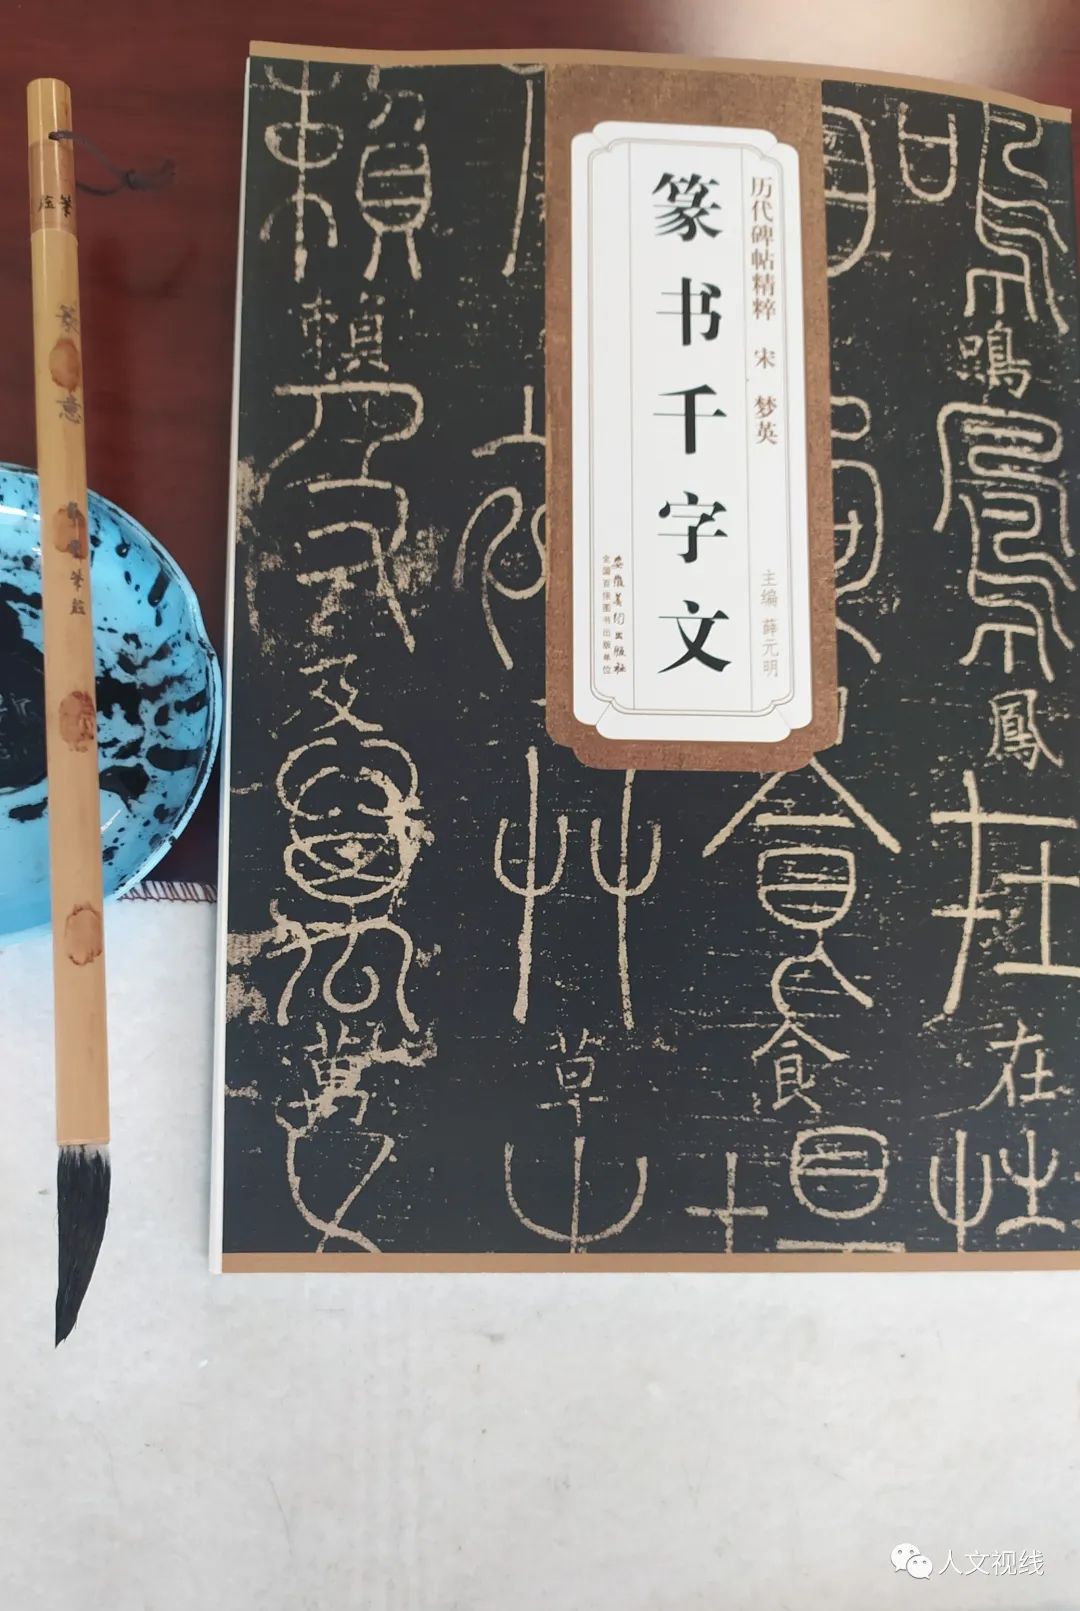 篆书千字文
历代碑帖精粹 宋 梦英
主编 薛元明
安徽美术出版社
全国百佳图书出版单位
鳴
鳳
在
食
草
賴
及
萬
篆意
人文视线